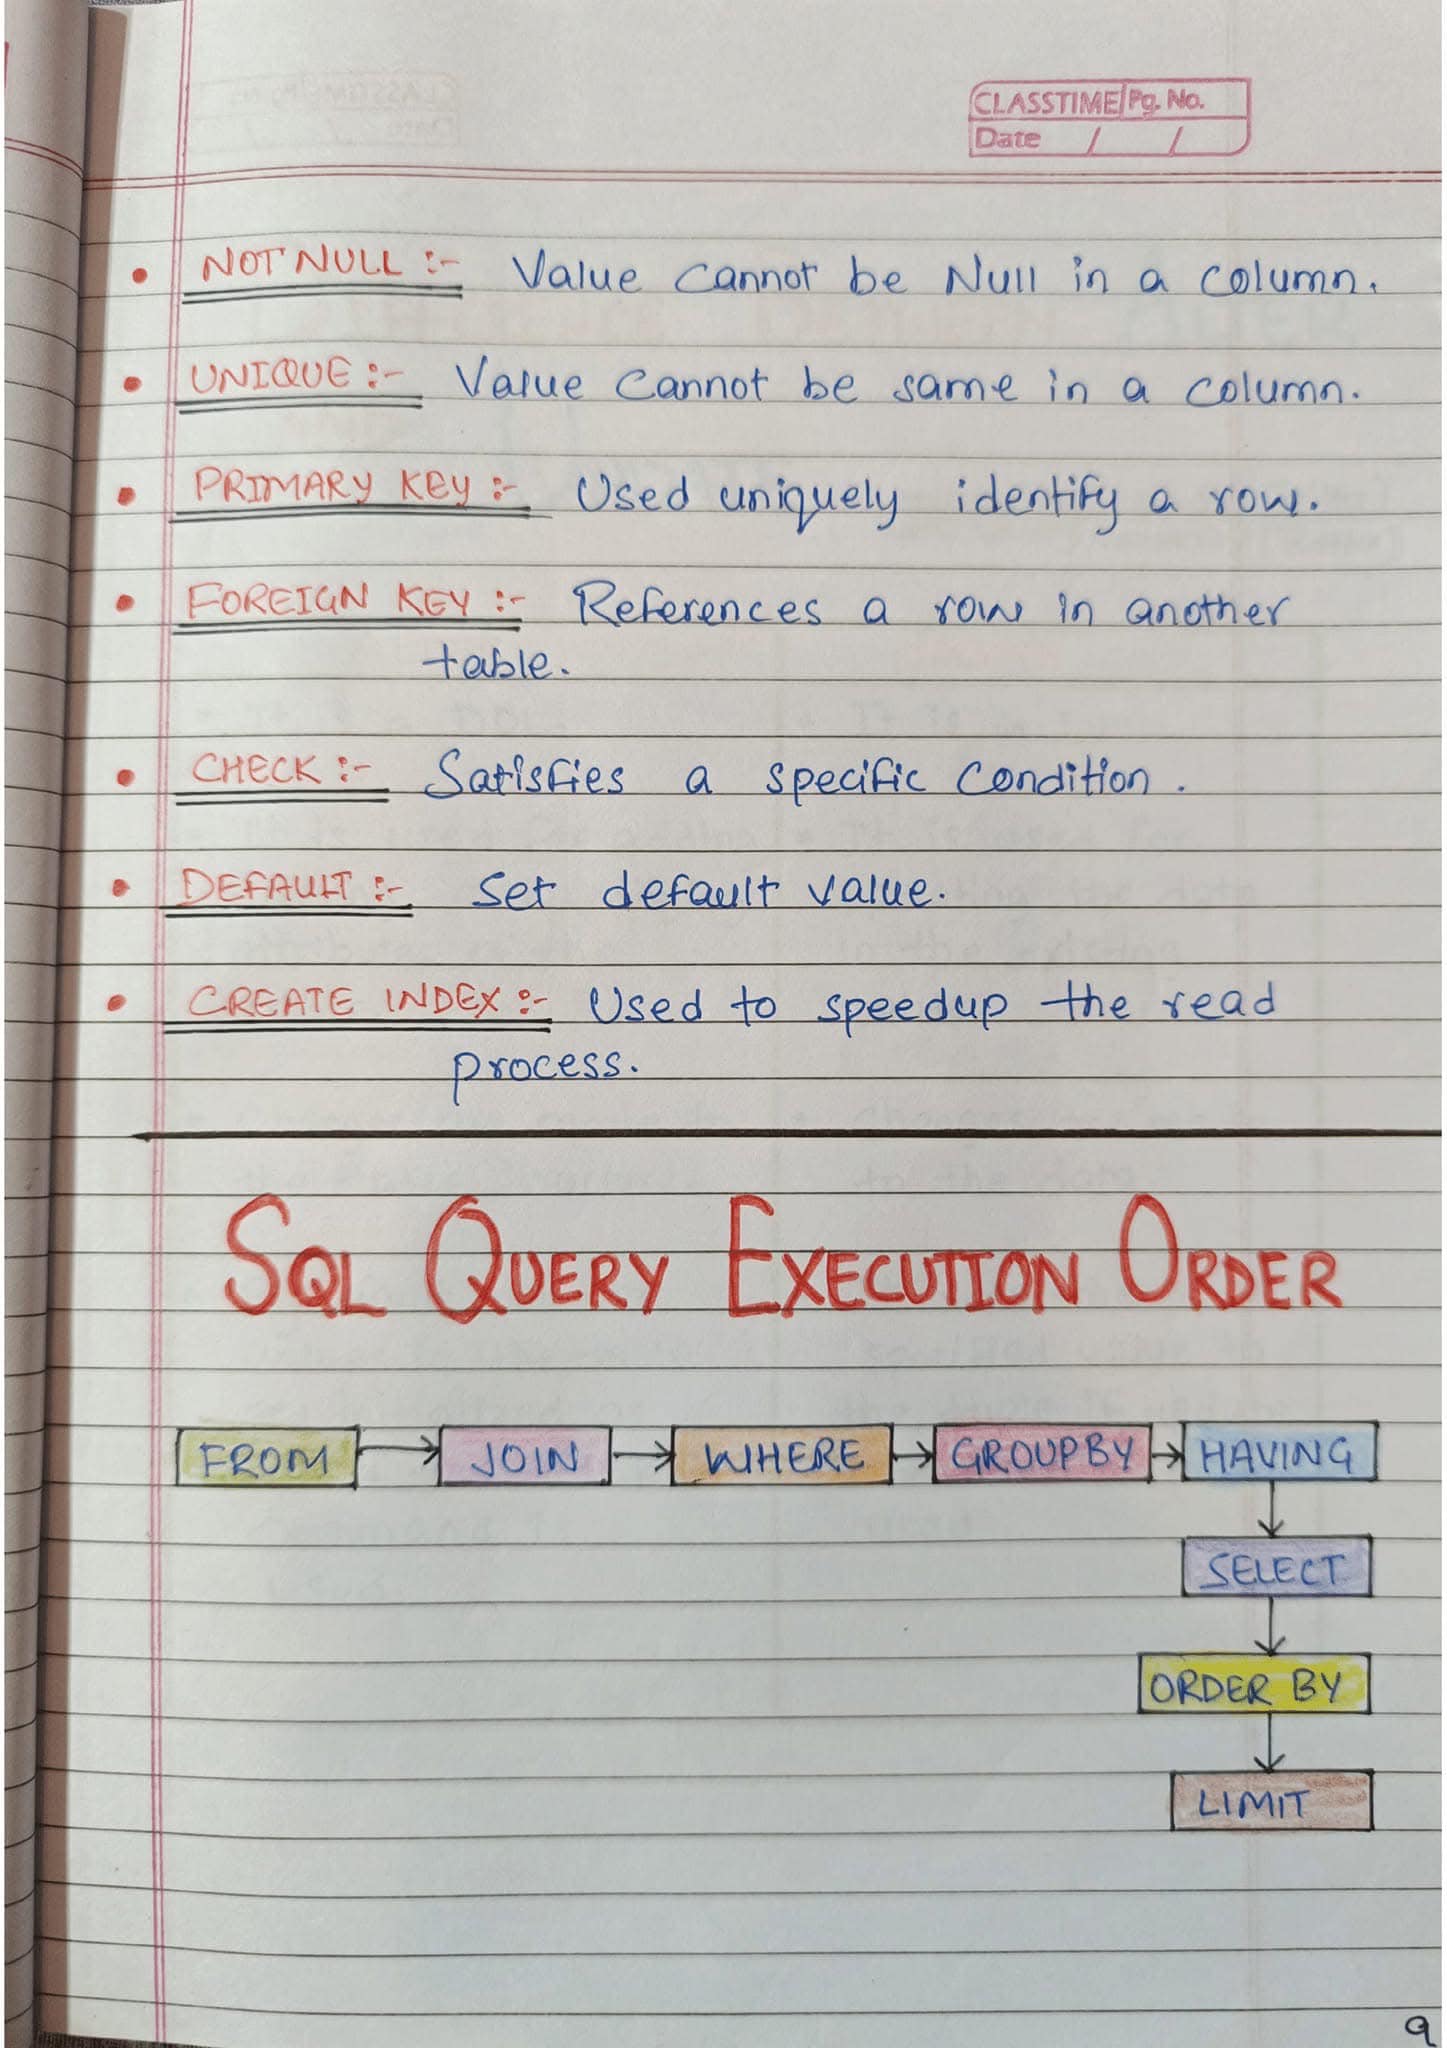 CLASSTIME Pg. No.
Date / /
• NOT NULL :- Value cannot be Null in a column.
• UNIQUE :- Value cannot be same in a column.
• PRIMARY KEY :- Used uniquely identify a row.
• FOREIGN KEY :- References a row in another
table.
• CHECK :- Satisfies a specific condition.
• DEFAULT :- Set default value.
• CREATE INDEX :- Used to speedup the read
process.
SQL QUERY EXECUTION ORDER
FROM → JOIN → WHERE → GROUPBY → HAVING
SELECT
ORDER BY
LIMIT
9